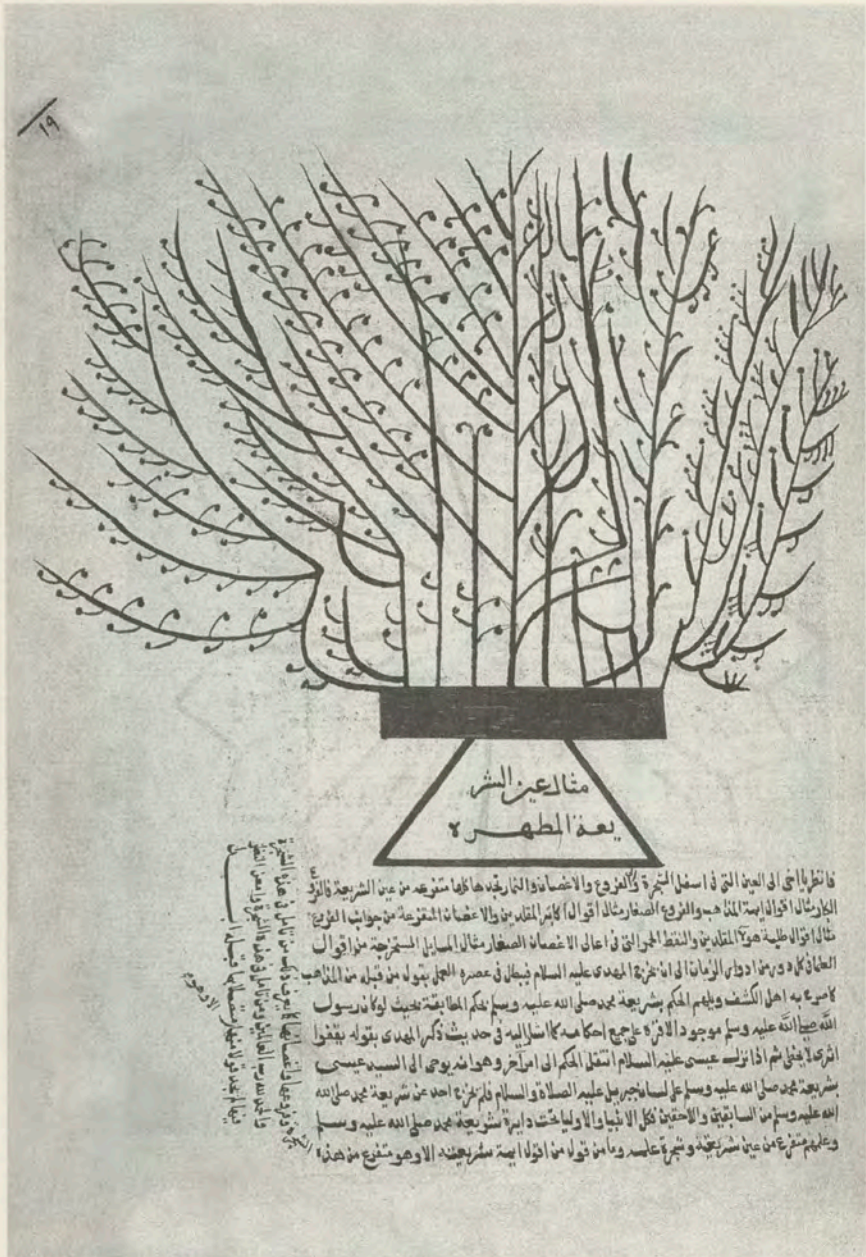 ١٩
مثال عين الشر
يعة المطهرة
فانظر يا اخى الى العين التى فى اسفل الشجرة والفروع والاغصان والثمار تجدها كلها متفرعه من عين الشريعة فالفروع
الكبار مثال اقوال ايمة المذاهب والفروع الصغار مثال اقوال اكابر المقلدين والاغصان المتفرعة من جوانب الفروع
مثال اقوال طلبة هولآ المقلدين والنقط الحمر التى فى اعالى الاغصان الصغار مثال المسايل المستخرجة من اقوال
العلما فى كل دور من ادوار الزمان الى ان يخرج المهدى عليه السلام فيبطل فى عصره العمل بقول من قبله من المذاهب
كما صرح به اهل الكشف ويلهم الحكم بشريعة محمد صلى الله عليه وسلم بحكم المطابقة بحيث لو كان رسول
الله صلى الله عليه وسلم موجود الاقره على جميع احكامه كما اشار اليه فى حديث ذكر المهدى بقوله يقفوا
اثرى لا يخطى ثم اذا نزل عيسى عليه السلام انتقل الحكم الى امر آخر وهو انه يوحى الى السيد عيسى
بشريعة محمد صلى الله عليه وسلم على لسان جبريل عليه الصلاة والسلام فلم يخرج احد عن شريعة محمد صلى الله
الله عليه وسلم من السابقين واللاحقين فكل الانبيا والاوليا تحت دايرة شريعة محمد صلى الله عليه وسلم
وعلمهم متفرع من عين شريعته وشجرة علمه وما من قول من اقول ايمة شريعته الا وهو متفرع من هذه
الشجرة وفروعها واغصانها كما يعرف ذلك من تامل فى هذه الشجرة
والحمد لله رب العالمين ومن تامل فى هذه الشجرة وامعن النظر
فيها لم يجد قولا منها
الا وهو